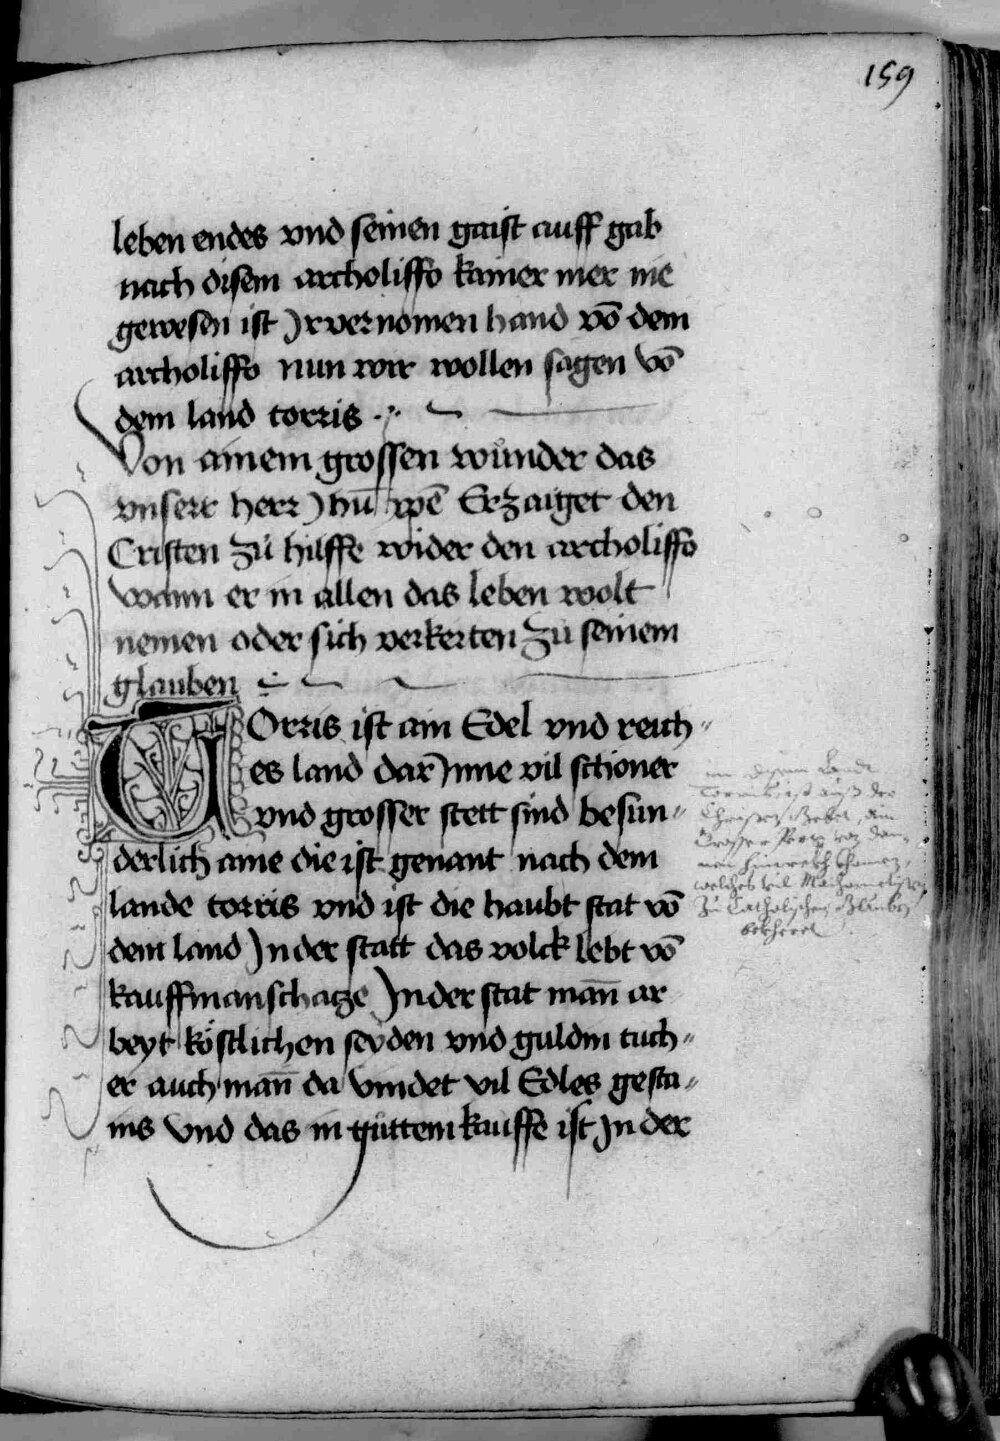 159
leben endes vnd seinen gaist auff gab
nach disem archoliffo kainer mer nie
gewesen ist Ir vernomen hand vō dem
archoliffo nun wir wollen sagen vō
dem land torris
Von ainem grossen wůnder das
vnserr herr Jhū xpē Erzaiget den
Cristen zů hilffe wider den archoliffo
wann er in allen das leben wolt
nemen oder sich verkerten zů seinem
glauben
TOrris ist ain Edel vnd reich〃
es land dar Jnne vil schoner
vnd grosser stett sind besun〃
derlich aine die ist genant nach dem
lande torris vnd ist die haubt stat vō
dem land Jn der statt das volck lebt vō
kauffmanschatze Jn der stat man̄ ar
beyt köstlichen seyden vnd guldin tuch〃
er auch man̄ da vindet vil Edles gesta〃
ins vnd das in gůttem kauffe ist Jn der
in disem Landt
Christen Gebet, ein
Grosser Perg von dan
welches vil Machometisch
zu Catholischen Glauben
bekheret